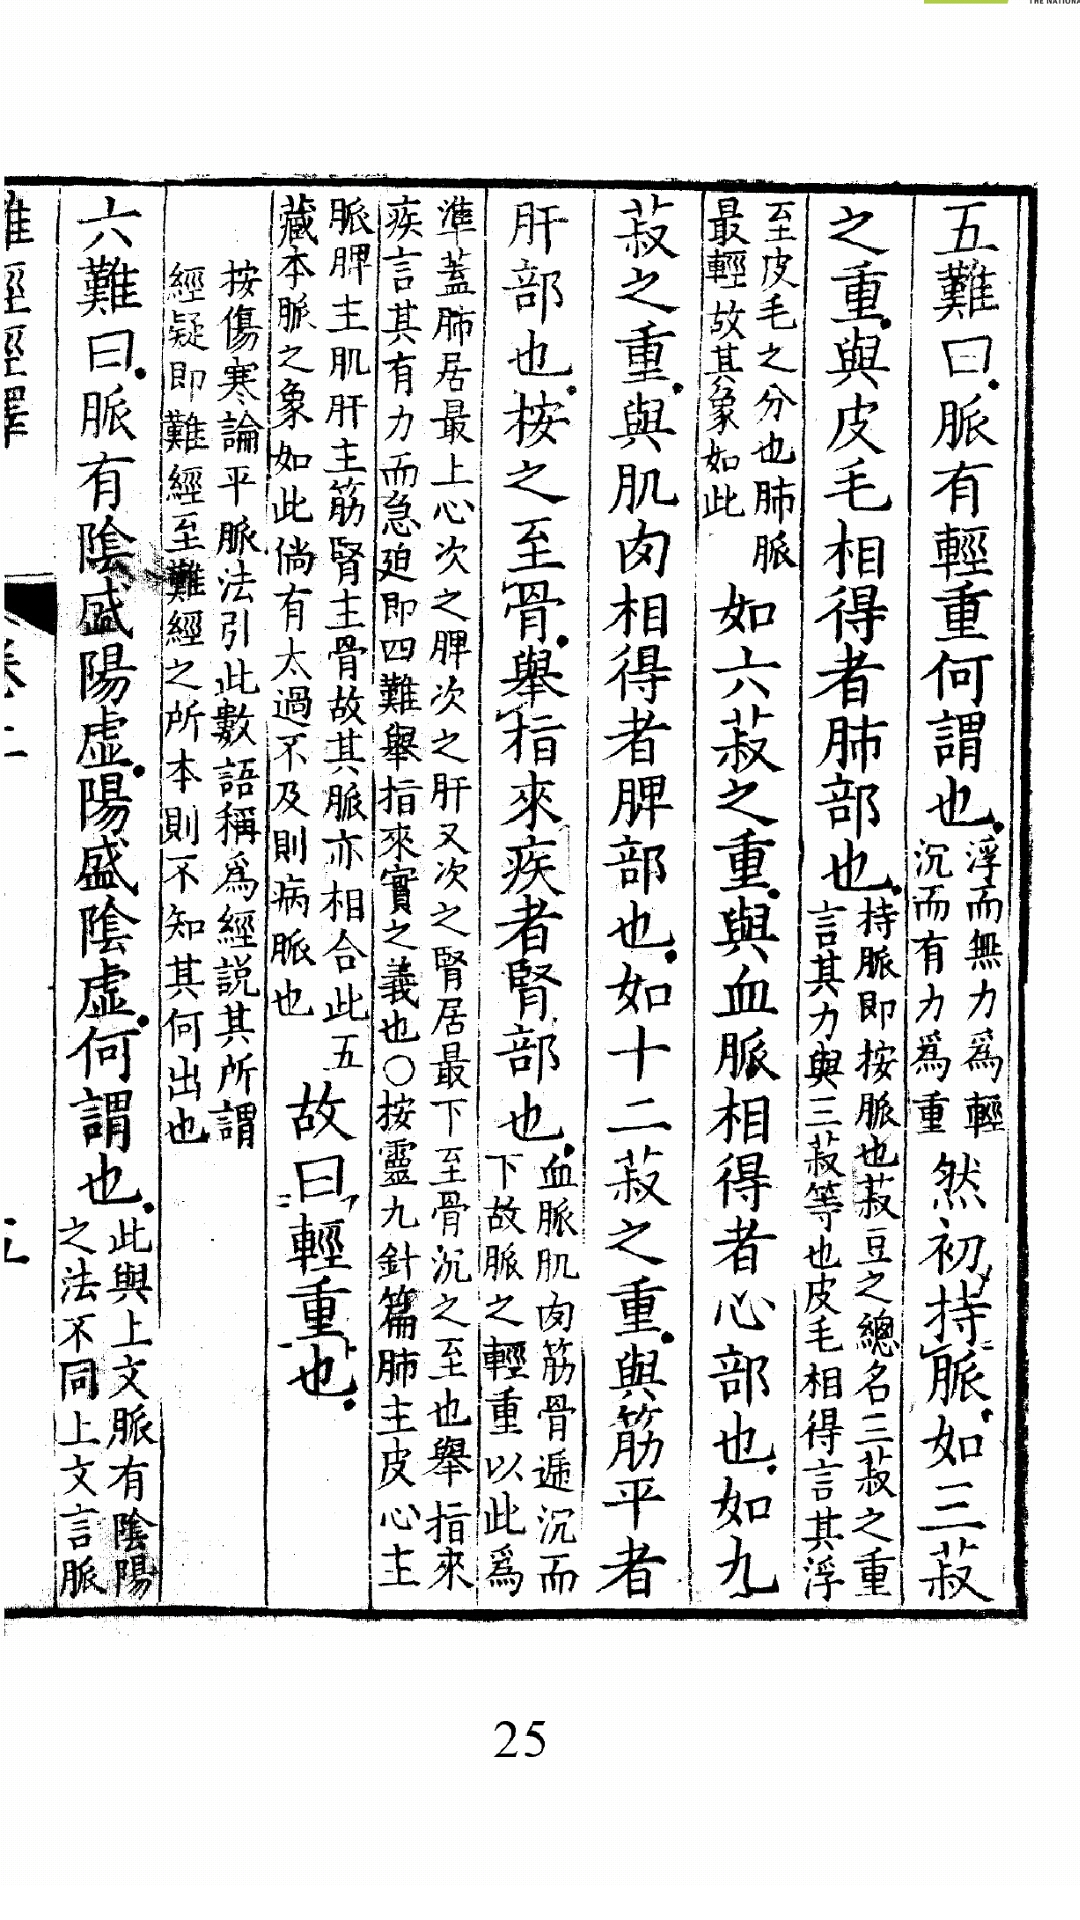 THE NATIONA
五難曰脈有輕重何謂也
浮而無力爲輕
沉而有力爲重
然初持脈如三菽
之重與皮毛相得者肺部也
持脈即按脈也菽豆之總名三菽之重
言其力與三菽等也皮毛相得言其浮
至皮毛之分也肺脈
最輕故其象如此
如六菽之重與血脈相得者心部也如九
菽之重與肌肉相得者脾部也如十二菽之重與筋平者
肝部也按之至骨舉指來疾者腎部也
血脈肌肉筋骨遞沉而
下故脈之輕重以此爲
準蓋肺居最上心次之脾次之肝又次之腎居最下至骨沉之至也舉指來
疾言其有力而急迫即四難舉指來實之義也○按靈九針篇肺主皮心主
脈脾主肌肝主筋腎主骨故其脈亦相合此五
藏本脈之象如此倘有太過不及則病脈也
故曰輕重也
按傷寒論平脈法引此數語稱爲經說其所謂
經疑即難經至難經之所本則不知其何出也
六難曰脈有陰盛陽虛陽盛陰虛何謂也
此與上文脈有陰陽
之法不同上文言脈
難經經釋
卷上
五
25